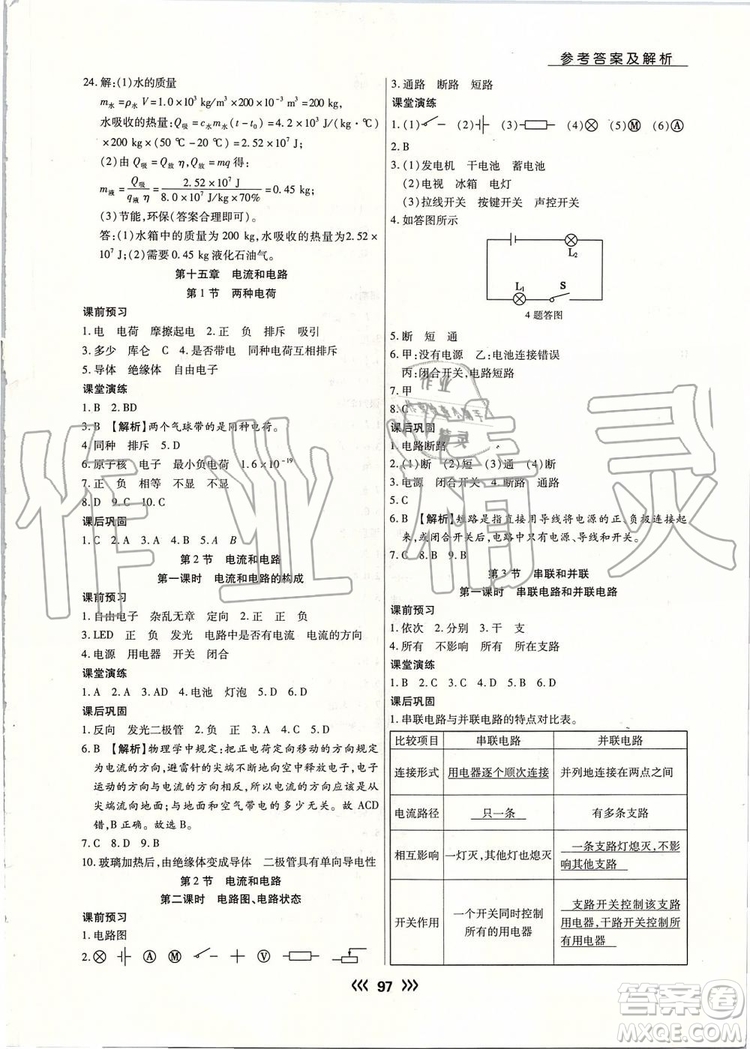 参考答案及解析
24. 解:(1)水的质量
m水=ρ水 V=1.0×10³ kg/m³×200×10⁻³ m³=200 kg,
水吸收的热量:Q吸=c水m水(t-t0)=4.2×10³ J/(kg·℃)
×200 kg×(50 ℃-20 ℃)=2.52×10⁷ J
(2)由 Q吸=Q放 η,Q放=mq 得:
m液=Q吸/q液 η=2.52×10⁷ J/8.0×10⁷ J/kg×70%=0.45 kg;
(3)节能,环保(答案合理即可)。
答:(1)水箱中的质量为 200 kg,水吸收的热量为 2.52×
10⁷ J;(2)需要 0.45 kg 液化石油气。
第十五章 电流和电路
第 1 节 两种电荷
课前预习
1. 电 电荷 摩擦起电 2. 正 负 排斥 吸引
3. 多少 库仑 C 4. 是否带电 同种电荷互相排斥
5. 导体 绝缘体 自由电子
课堂演练
1. B 2. BD
3. B 【解析】两个气球带的是同种电荷。
4. 同种 排斥 5. D
6. 原子核 电子 最小负电荷 1.6×10⁻¹⁹
7. 正 负 相等 不显 不显
8. D 9. C 10. C
课后巩固
1. C 2. A 3. D 4. B 5. A B
第 2 节 电流和电路
第一课时 电流和电路的构成
课前预习
1. 自由电子 杂乱无章 定向 2. 正 负
3. LED 正 负 发光 电路中是否有电流 电流的方向
4. 电源 用电器 开关 闭合
课堂演练
1. A 2. A 3. AD 4. 电池 灯泡 5. D 6. D
课后巩固
1. 反向 发光二极管 2. C 3. A 4. B 5. D
6. B 【解析】物理学中规定,把正电荷移动的方向规定
为电流的方向,避雷针的尖端不断地向空中放电,电子
运动的方向与电流的方向相反,电流方向由地面向上
尖端流向地面;与地面和空气带电的多少无关。故 ACD
错,B 正确。故选:B。
7. C 8. D 9. B
10. 玻璃加热后,由绝缘体变成导体 二极管具有单向导电性
第 2 节 电流和电路
第二课时 电路图、电路状态
课前预习
1. 电路图
2.
3. 通路 断路 短路
课堂演练
1. (1) (2) (3) (4) (5)M (6)A
2. B
3. (1)发电机 干电池 蓄电池
(2)电视 冰箱 电灯
(3)拉线开关 按键开关 声控开关
4. 如答图所示
L2
L1 S
4 题答图
5. 断 短 通
6. 甲:没有电源 乙:电池连接错误
丙:闭合开关,电路短路
7. 甲
8. C
课后巩固
1. 电路断路
2. (1)断 (2)短 (3)短 (4)断
3. 电源 闭合开关 4. 断路 通路
5. C
6. B 【解析】短路是指直接用导线将电源的正、负极连接起
来,电路中只有电源、导线和开关。
7. C 8. B 9. B
第 3 节 串联和并联
第一课时 串联电路和并联电路
课前预习
1. 依次 2. 分别 3. 干 支
4. 所有 不影响 所有 所有支路
课堂演练
1. B 2. C 3. D 4. C 5. B 6. D
课后巩固
1. 串联电路与并联电路的特点对比表。
比较项目 串联电路 并联电路
连接形式 用电器逐个顺次连接 并列地连接在两点之间
电流路径 只一条 有多条支路
相互影响 一灯灭,其他灯熄灭 一条支路灯熄灭,不影
响其他支路
开关作用 一个开关同时控制
所有的用电器 支路开关控制该支路
用电器,干路开关控制所
有用电器
97
作业精灵
答案圈
MXQE.COM